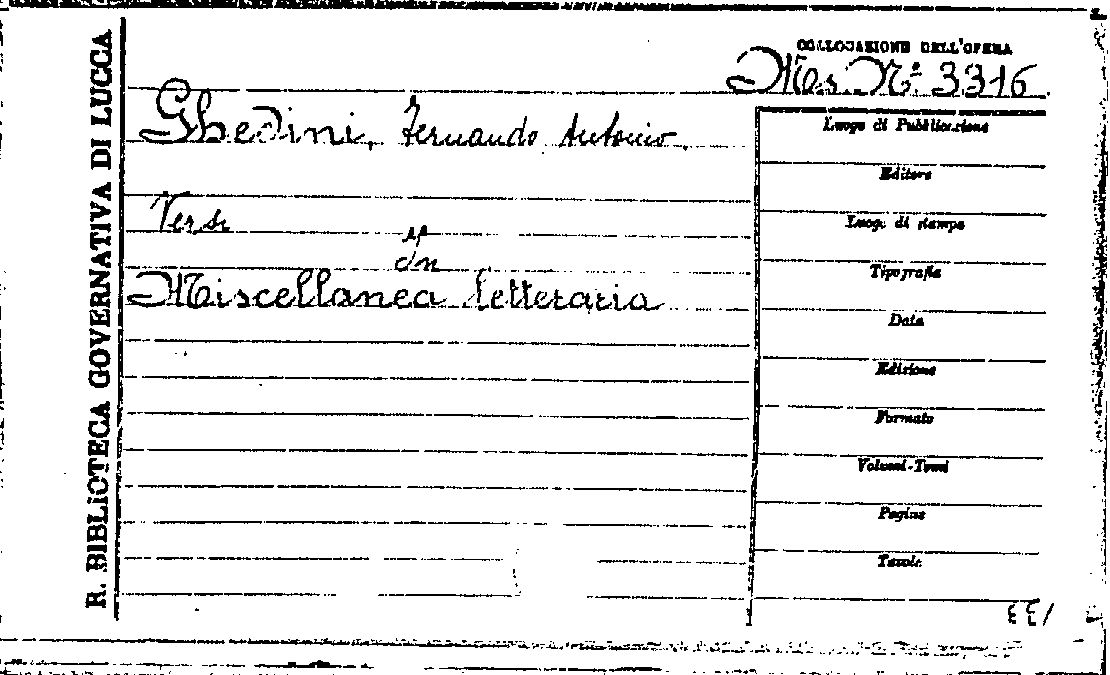 R. BIBLIOTECA GOVERNATIVA DI LUCCA
COLLOCAZIONE DELL'OPERA
Mss. N.º 3316
Ghedini, Fernando Antonio.
Versi
In
Miscellanea letteraria
Luogo di Pubblicazione
Editore
Luogo di stampa
Tipografia
Data
Edizione
Formato
Volumi-Tomi
Pagine
Tavole